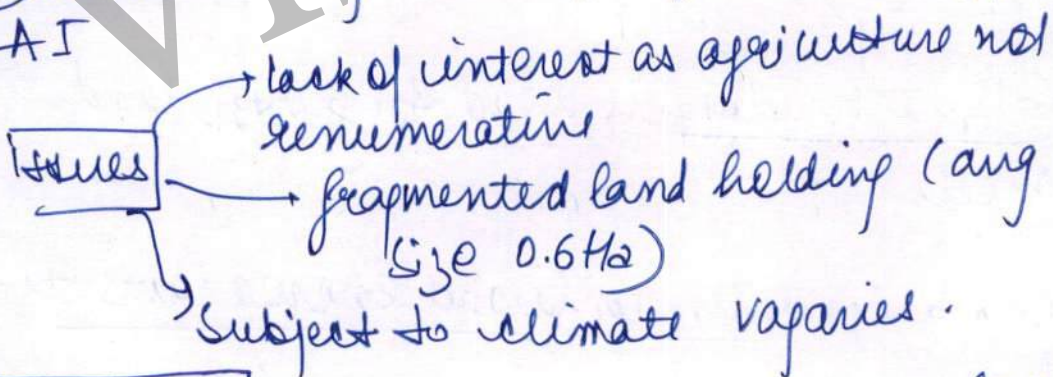 AI
→ lack of interest as agriculture not
renumerative
Issues
→ fragmented land holding (avg
size 0.6Ha)
→ Subject to climate vagaries.